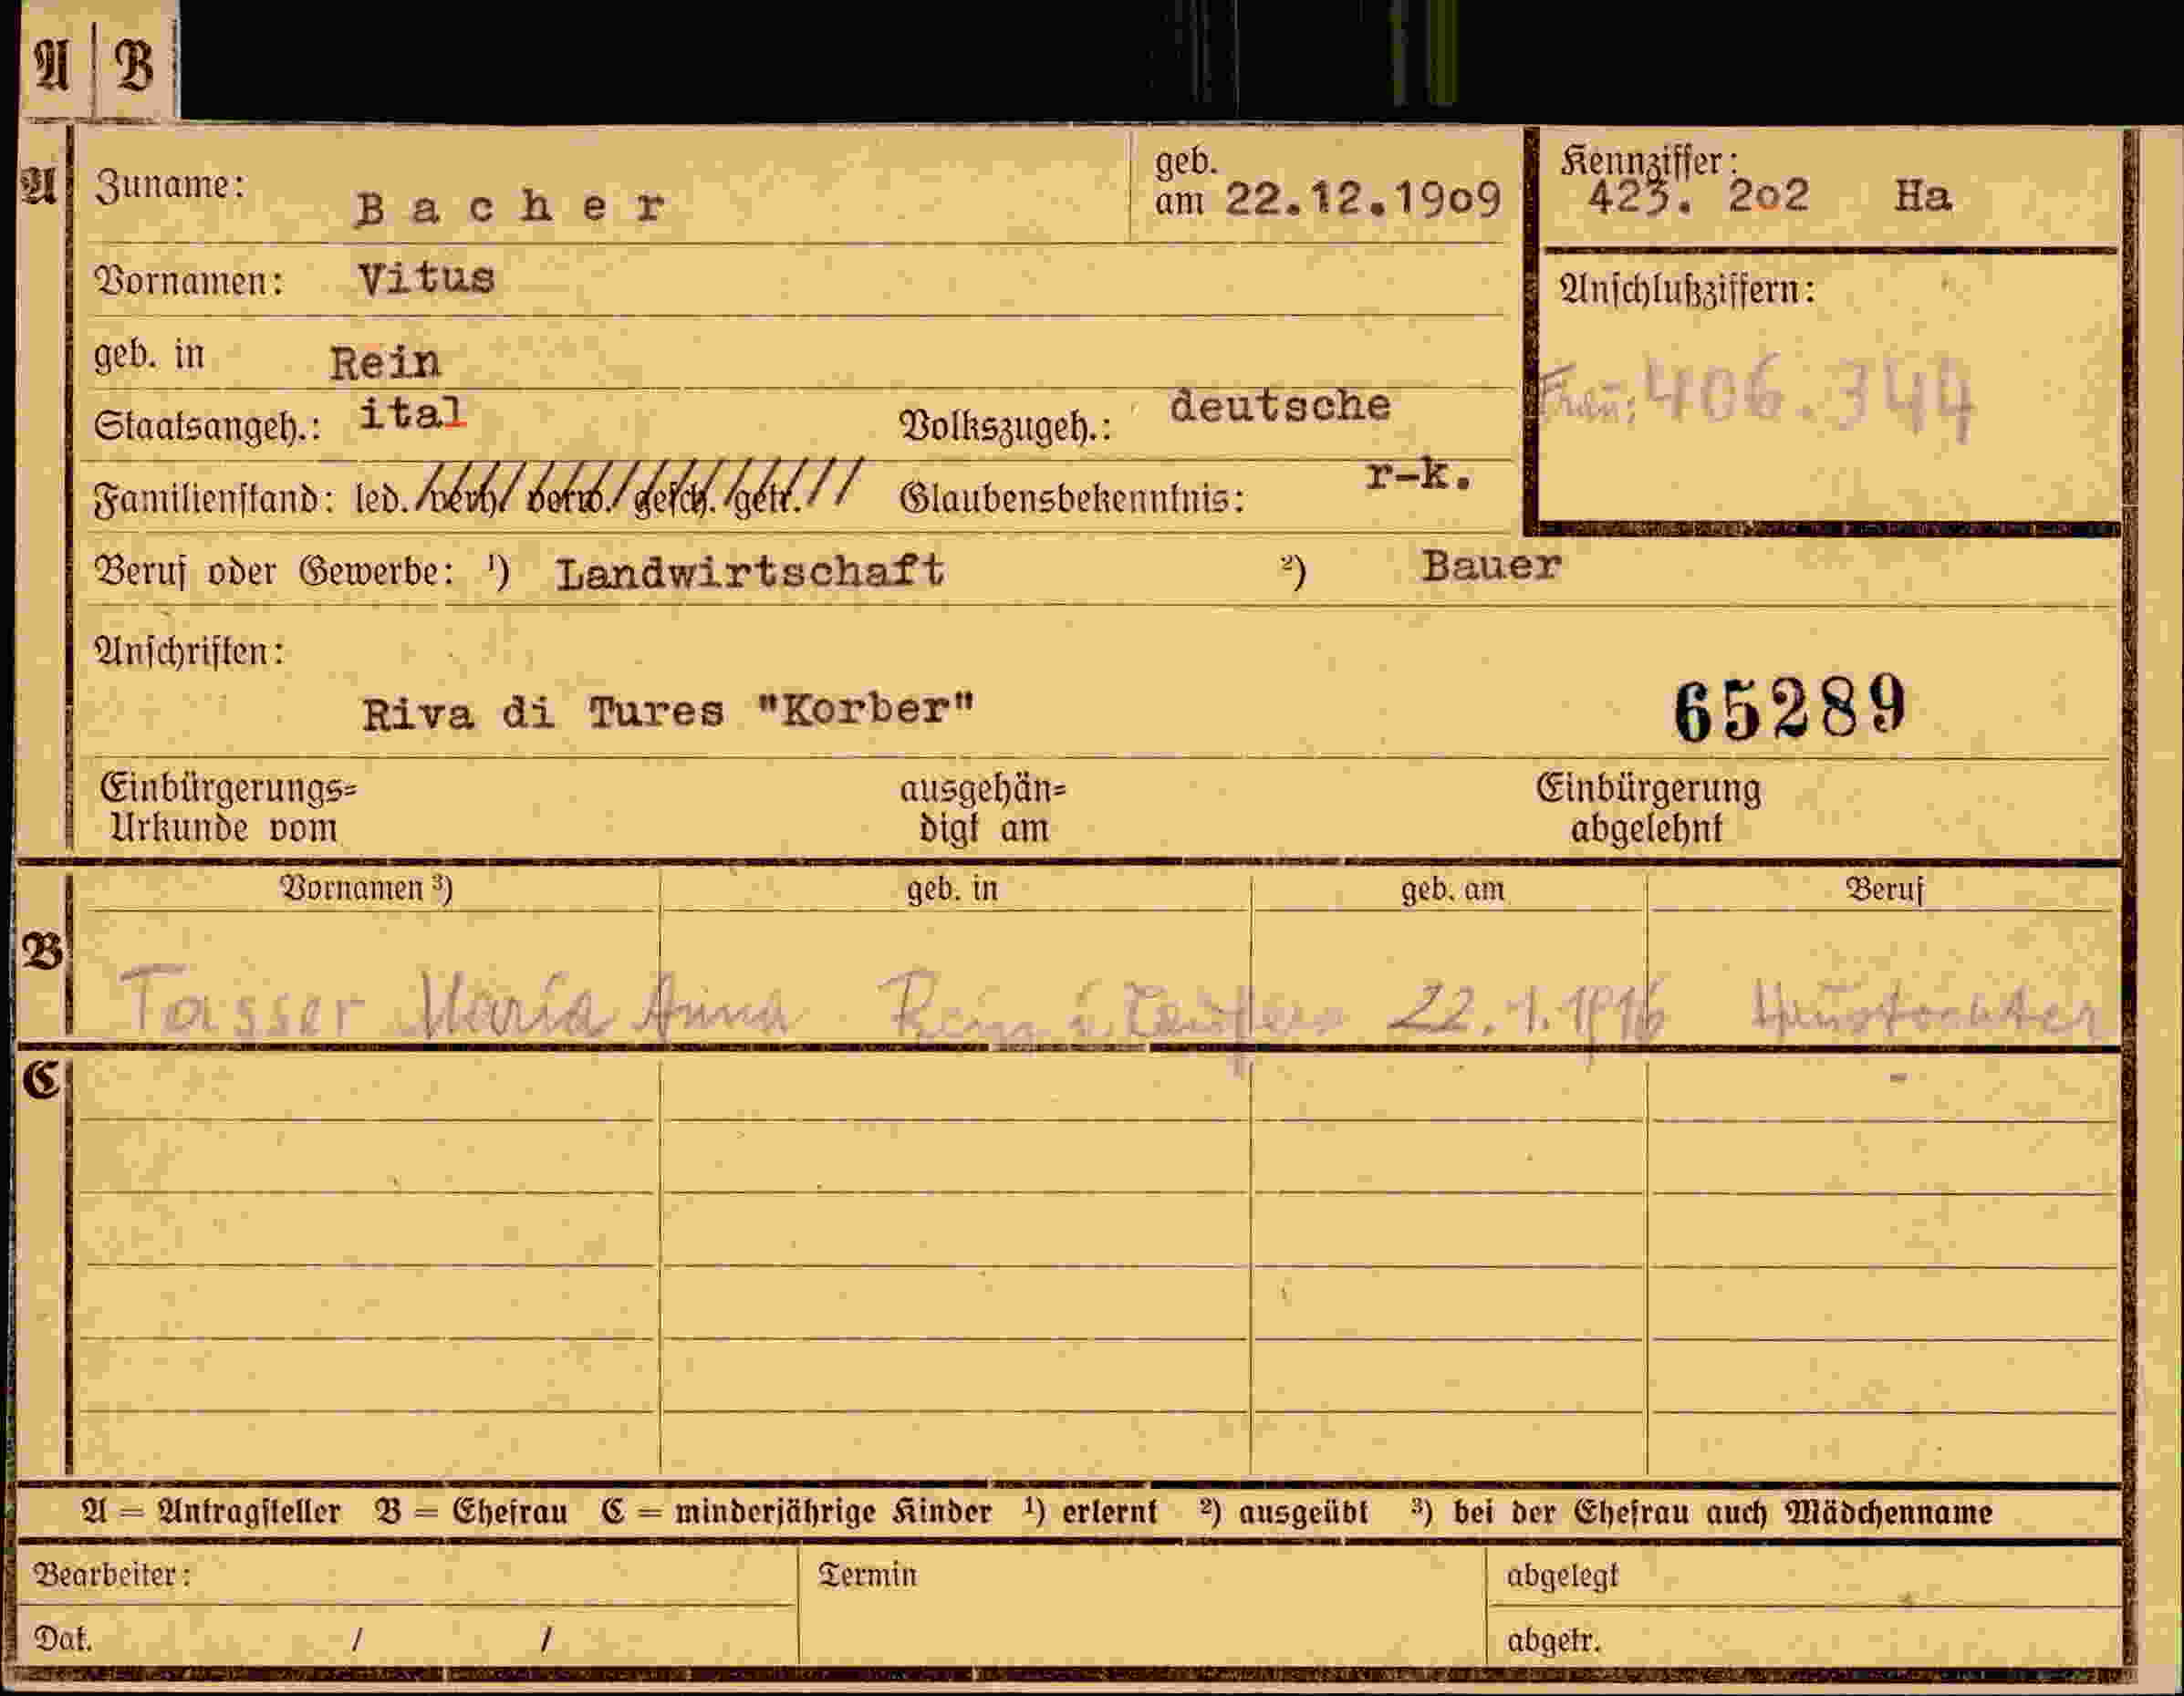 A B
A Zuname: Bacher geb. am 22.12.1909 Kennziffer: 423. 2o2 Ha
Vornamen: Vitus
Anschlußziffern:
geb. in Rein
Frau: 406.344
Staatsangeh.: ital Volkszugeh.: deutsche
Familienstand: led. verh. verw. gesch. getr. Glaubensbekenntnis: r-k.
Beruf oder Gewerbe: ¹) Landwirtschaft ²) Bauer
Anschriften:
Riva di Tures "Korber" 65289
Einbürgerungs= ausgehän= Einbürgerung
Urkunde vom digt am abgelehnt
Vornamen ³) geb. in geb. am Beruf
B
Tasser Maria Anna Rein i. Taufers 22.1.1916 Haustochter
C
A = Antragsteller B = Ehefrau C = minderjährige Kinder ¹) erlernt ²) ausgeübt ³) bei der Ehefrau auch Mädchenname
Bearbeiter: Termin abgelegt
Dat. / / abgetr.